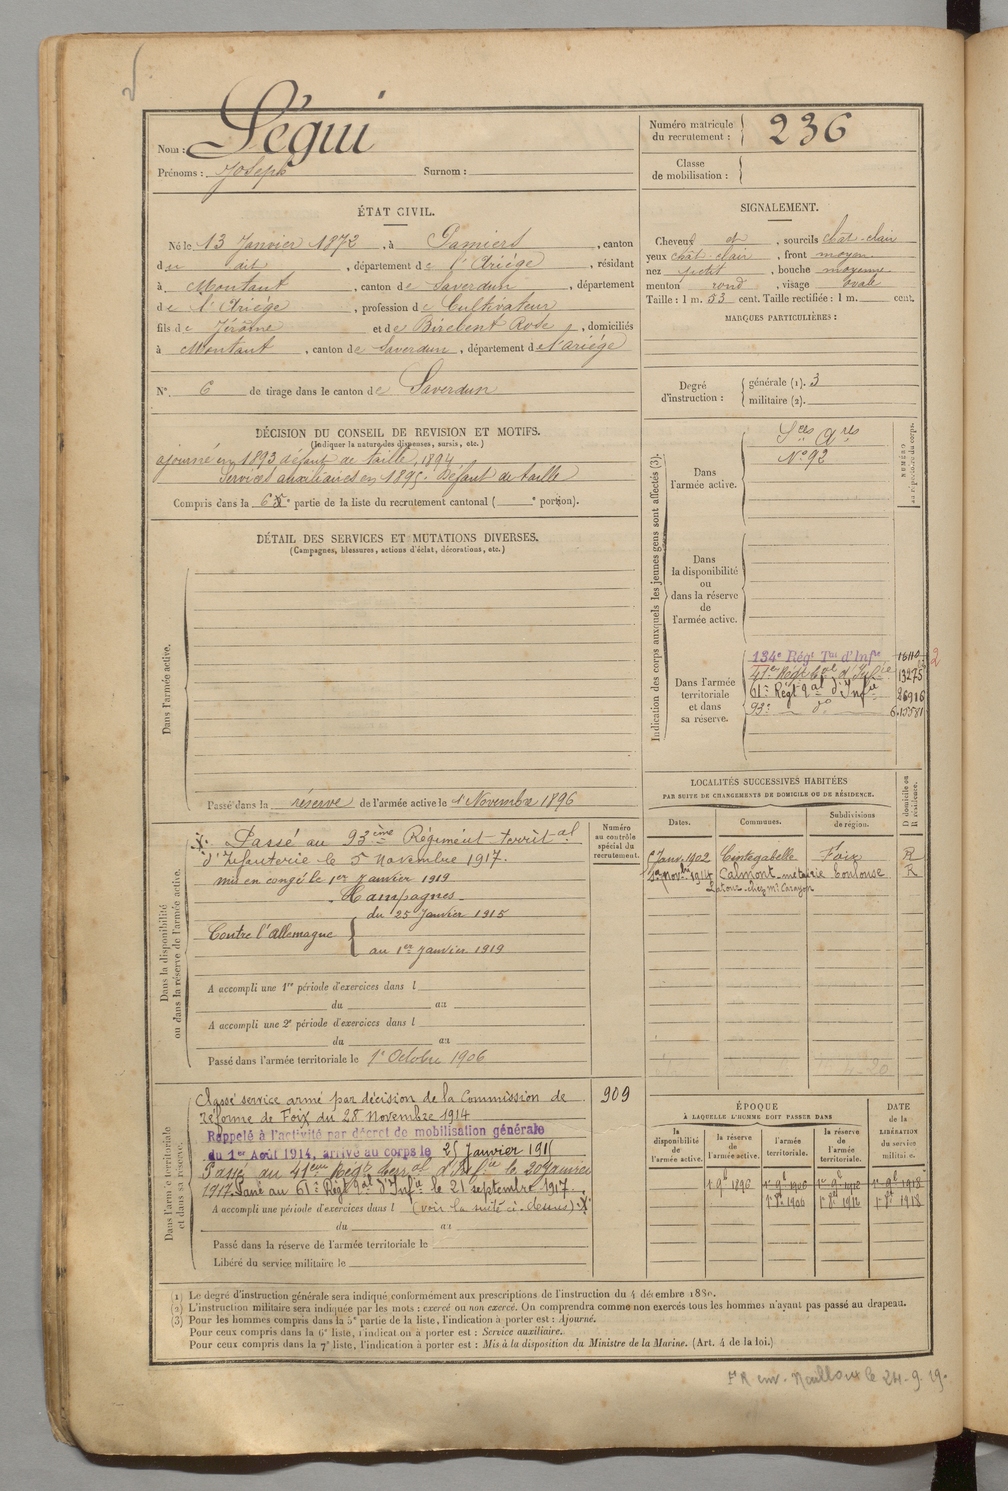 Nom : Ségui
Prénoms : Joseph Surnom :
Numéro matricule du recrutement : 236
Classe de mobilisation :
ÉTAT CIVIL.
Né le 13 Janvier 1872, à Pamiers, canton
du dit, département de l'Ariège, résidant
à Montaut, canton de Saverdun, département
de l'Ariège, profession de Cultivateur
fils de Jérôme et de Birebent Rose, domiciliés
à Montaut, canton de Saverdun, département de l'ariège
N° 6 de tirage dans le canton de Saverdun
SIGNALEMENT.
Cheveux et, sourcils chât-clair
yeux chât-clair, front moyen
nez petit, bouche moyenne
menton rond, visage ovale
Taille : 1 m. 53 cent. Taille rectifiée : 1 m. cent.
MARQUES PARTICULIÈRES :
Degré d'instruction : générale (1). 3
militaire (2).
DÉCISION DU CONSEIL DE REVISION ET MOTIFS.
(Indiquer la nature des dispenses, sursis, etc.)
ajourné en 1893 défaut de taille, 1894
Services auxiliaires en 1895. Défaut de taille
Compris dans la 6e partie de la liste du recrutement cantonal ( e portion).
DÉTAIL DES SERVICES ET MUTATIONS DIVERSES.
(Campagnes, blessures, actions d'éclat, décorations, etc.)
Dans l'armée active.
Passé dans la réserve de l'armée active le 1 Novembre 1896
Indication des corps auxquels les jeunes gens sont affectés (3).
NUMÉRO au répertoire du corps.
Dans l'armée active.
Sces Ares
N° 92
Dans la disponibilité ou dans la réserve de l'armée active.
Dans l'armée territoriale et dans sa réserve.
134e Régt Tal d'Infie 16110
41er Régt tal d'Infie 13275
61e Régt tal d'Infie 26916
93e do 6.15581
Dans la disponibilité ou dans la réserve de l'armée active.
Numéro au contrôle spécial du recrutement.
X. Passé au 93ème Régiment territal
d'Infanterie le 5 Novembre 1917.
mis en congé le 1er Janvier 1919
Campagnes
Contre l'allemagne du 25 Janvier 1915
au 1er Janvier 1919
A accompli une 1re période d'exercices dans l
du au
A accompli une 2e période d'exercices dans l
du au
Passé dans l'armée territoriale le 1er Octobre 1906
LOCALITÉS SUCCESSIVES HABITÉES
PAR SUITE DE CHANGEMENTS DE DOMICILE OU DE RÉSIDENCE.
Dates. Communes. Subdivisions de région. D domicile ou R résidence.
Janv. 1902 Cintegabelle Foix R
Nov. 1914 Calmont métairie Toulouse R
Latour chez Mr Carayon
Dans l'armée territoriale et dans sa réserve.
909
Classé service armé par décision de la Commission de
réforme de Foix du 28 Novembre 1914
Rappelé à l'activité par décret de mobilisation générale
du 1er Août 1914, arrivé au corps le 25 Janvier 1915
Passé au 41eme Régt terral d'Infie le 20 Janvier
1917. Passé au 61e Régt tal d'Infie le 21 septembre 1917.
A accompli une période d'exercices dans l (voir la suite ci-dessus) X
du au
Passé dans la réserve de l'armée territoriale le
Libéré du service militaire le
ÉPOQUE
À LAQUELLE L'HOMME DOIT PASSER DANS
DATE de la LIBÉRATION du service militaire.
la disponibilité de l'armée active. la réserve de l'armée active. l'armée territoriale. la réserve de l'armée territoriale.
1 9b 1896 1er 9b 1906 1er 9b 1912 1er 9b 1918
1 8bre 1906 1 8bre 1912 1 8bre 1918
(1) Le degré d'instruction générale sera indiqué conformément aux prescriptions de l'instruction du 4 décembre 1889.
(2) L'instruction militaire sera indiquée par les mots : exercé ou non exercé. On comprendra comme non exercés tous les hommes n'ayant pas passé au drapeau.
(3) Pour les hommes compris dans la 5e partie de la liste, l'indication à porter est : Ajourné.
Pour ceux compris dans la 6e liste, l'indication à porter est : Service auxiliaire.
Pour ceux compris dans la 7e liste, l'indication à porter est : Mis à la disposition du Ministre de la Marine. (Art. 4 de la loi.)
le 24.9.19.